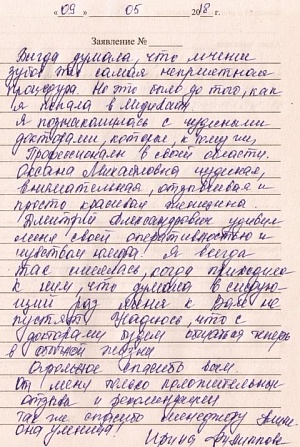 « 09 » 05 2018 г.
Заявление №
Всегда думала, что лечение
зубов это самая неприятная
процедура. Но это было до того, как
я попала в Медикал
Я познакомилась с чудесными
докторами, которые, к тому же,
Профессионалы в своей области.
Оксана Михайловна чудесная,
внимательная, отзывчивая и
просто красивая женщина.
Дмитрий Александрович удивил
меня своей оперативностью и
чувством юмора. Я всегда
так смеялась, когда приходила
к ним, что думала в следую-
щий раз меня к Вам не
пустят. Надеюсь, что с
докторами будем общаться теперь
в обычной жизни
Огромное спасибо Вам.
От меня только положительный
отзыв и рекомендации
Так же спасибо менеджеру
она умница!
Ирина